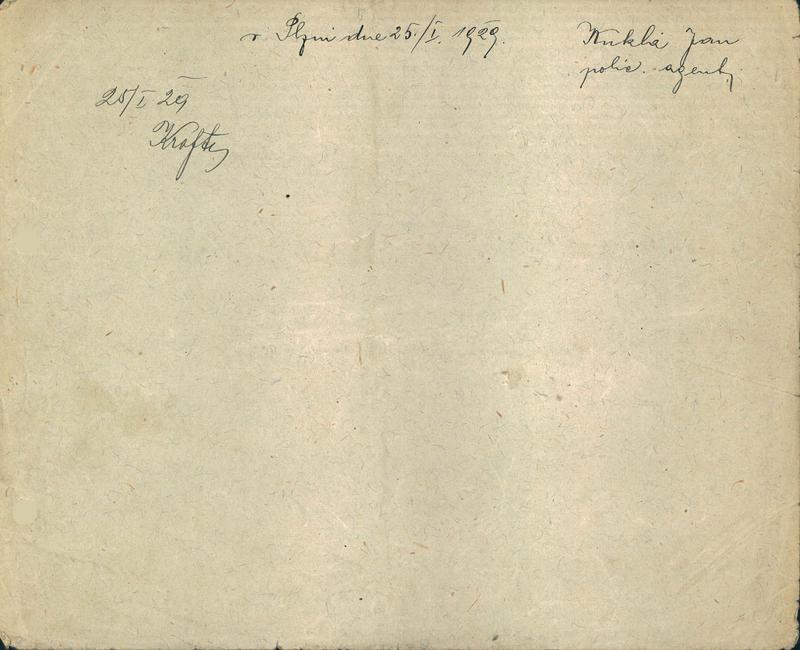 v Plzni dne 25./I. 1929.
Kuklá Jan
polic. agent.
25/I 29
Krofta